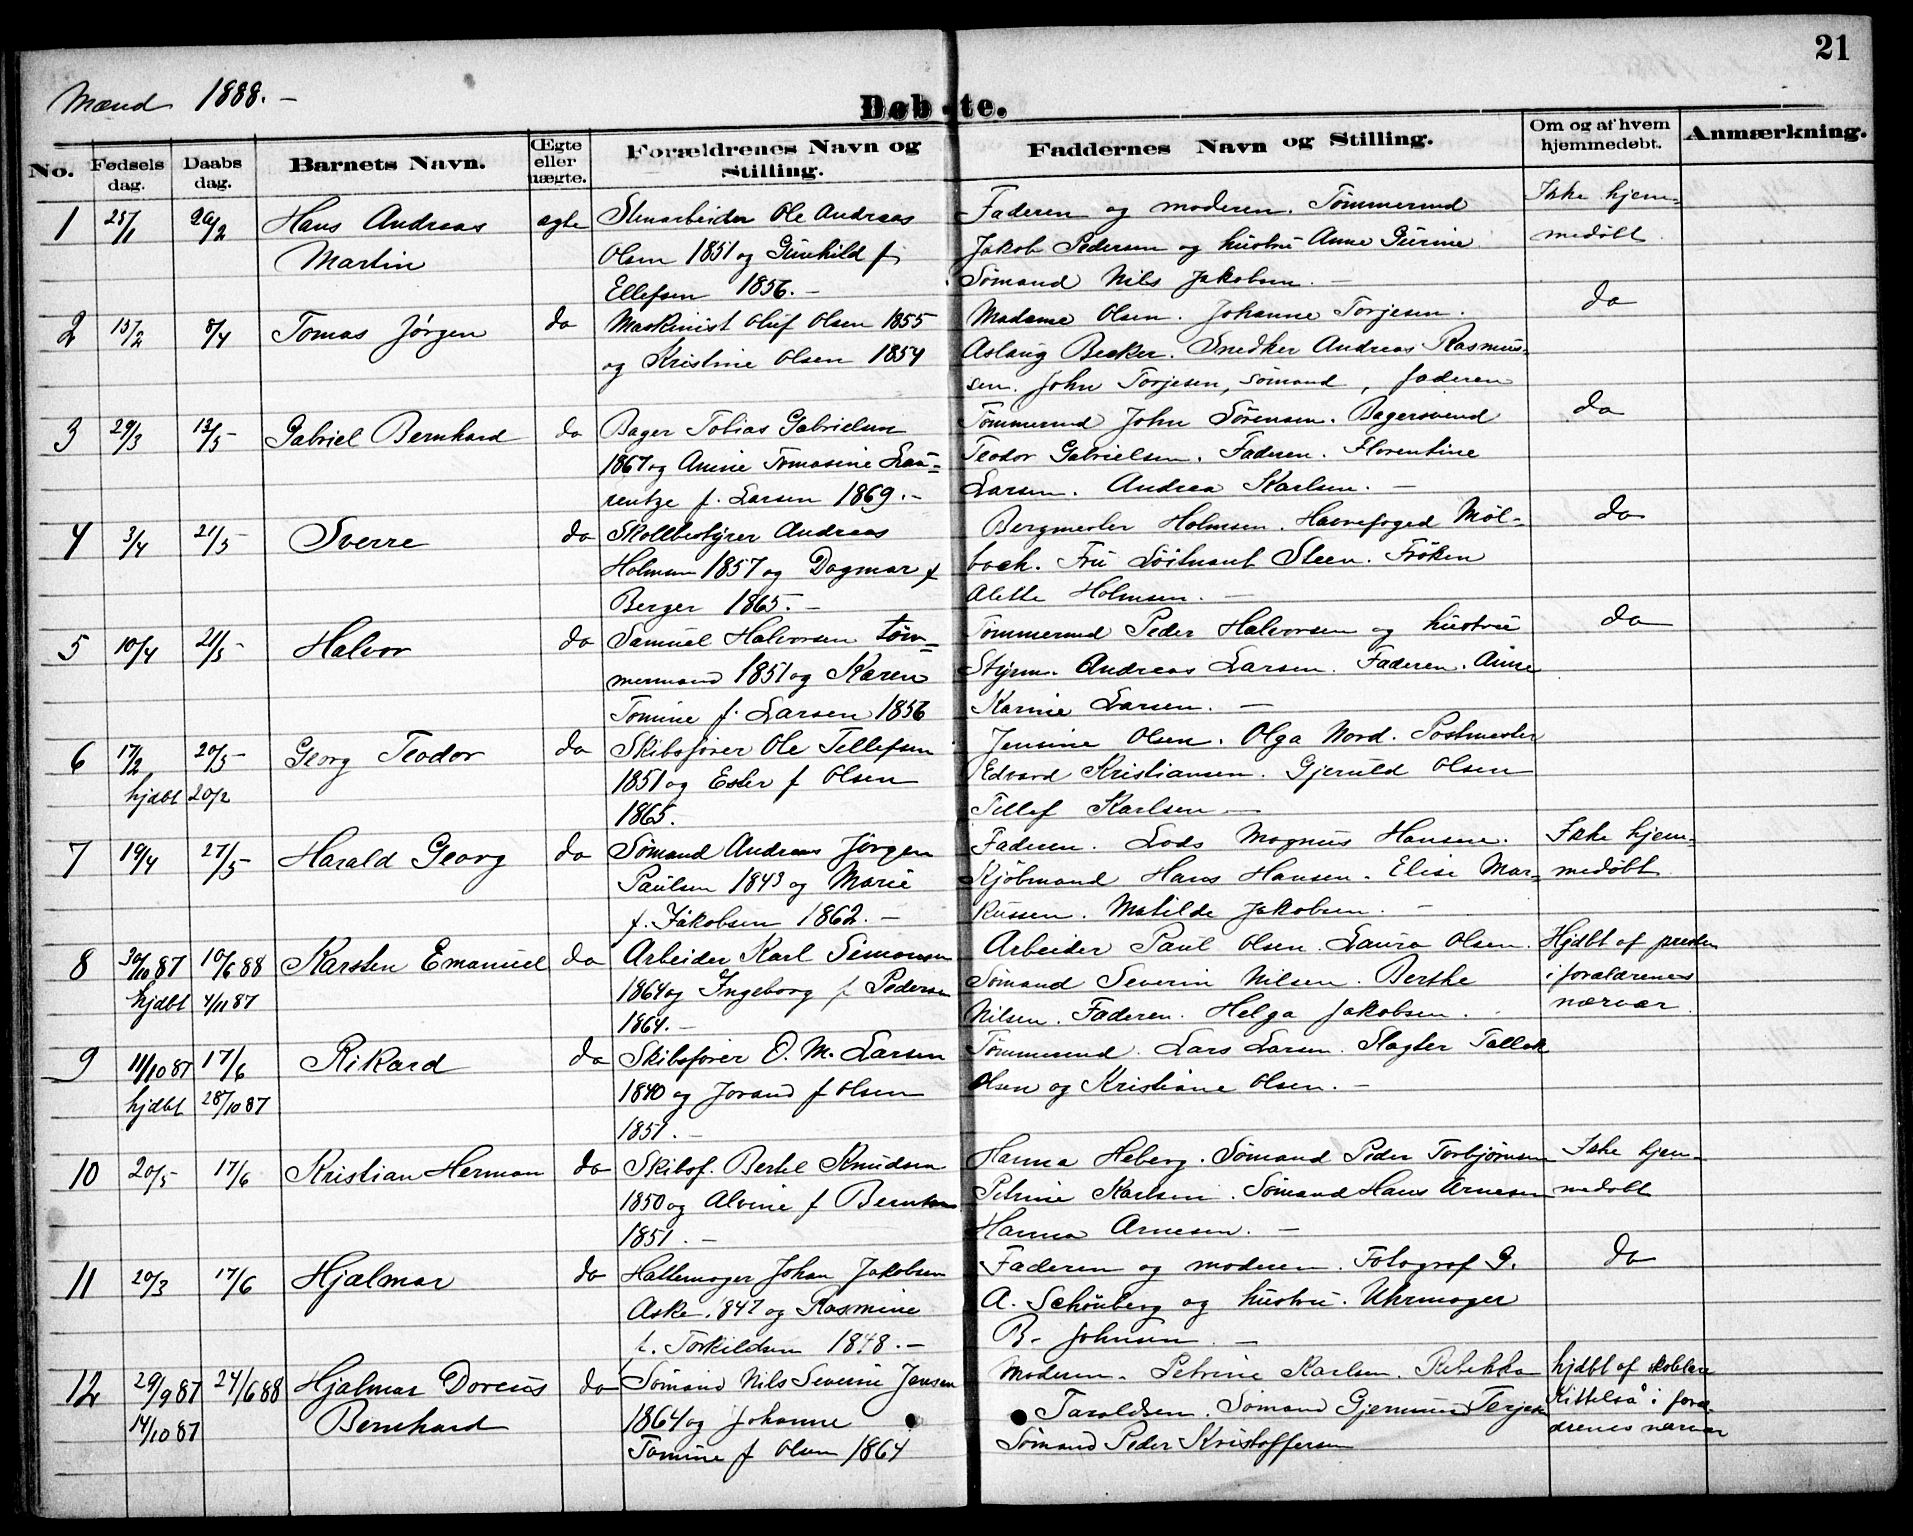 21
Mænd 1888. –
Døbte.
No.
Fødsels dag.
Daabs dag.
Barnets Navn.
Ægte eller uægte.
Forældrenes Navn og Stilling.
Faddernes Navn og Stilling.
Om og af hvem hjemmedøbt.
Anmærkning.
1 25/1 26/2 Hans Andreas ægte Stenarbeider Ole Andreas Faderen og moderen. Tømmermd Ikke hjem-
Martin Olsen 1851 og Gunhild f. Jakob Pedersen og hustru Anne Gurine medøbt
Ellefsen 1856. – Sømand Nils Jakobsen. –
2 15/2 8/4 Tomas Jørgen do Maskinist Oluf Olsen 1855 Madame Olsen. Johanne Torjesen. do
og Kristine Olsen 1854 Aslaug Becker. Snedker Andreas Rasmus-
sen. John Torjesen, sømand, faderen
3 29/3 13/5 Gabriel Bernhard do Bager Tobias Gabrielsen Tømmermd John Sørensen. Bagersvend do
1867 og Anine Tomasine Lau- Teodor Gabrielsen. Faderen. Florentine
rentze f. Larsen 1869. – Larsen. Andrea Karlsen. –
4 3/4 21/5 Sverre do Skolebestyrer Andreas Bergmester Holmsen. Havnefoged Møl- do
Holmsen 1857 og Dagmar f bach. Fru Løitnant Steen. Frøken
Berger 1865. – Alette Holmsen. –
5 10/4 21/5 Halvor do Samuel Halvorsen tøm- Tømmermd Peder Halvorsen og hustru do
mermand 1851 og Karen Styrm. Andreas Larsen. Faderen. Anne
Tomine f. Larsen 1856 Karine Larsen. –
6 17/2 20/5 Georg Teodor do Skibsfører Ole Tellefsen Jensine Olsen. Olga Nord. Postmester
hjdbt 20/2 1851 og Ester f Olsen Edvard Kristiansen. Gjeruld Olsen
1865. Tellef Karlsen –
7 19/4 27/5 Harald Georg do Sømand Andreas Jørgen Faderen. Lods Magnus Hansen. Ikke hjem-
Paulsen 1843 og Marie Kjøbmand Hans Hansen. Elise Mar- medøbt
f. Jakobsen 1862. – kussen. Matilde Jakobsen. –
8 30/10 87 10/6 88 Karsten Emanuel do Arbeider Karl Simonsen Arbeider Paul Olsen. Laura Olsen. Hjdbt af presten
hjdbt 4/11 87 1864 og Ingeborg f Pedersen Sømand Severin Nilsen. Berthe i forældrenes
1864. – Nilsen. Faderen. Helga Jakobsen. nærvær.
9 11/10 87 17/6 Rikard do Skibsfører O. M. Larsen Tømmermd. Lars Larsen. Slagter Tallak
hjdbt 28/10 87 1840 og Jorand f Olsen Olsen og Kristiane Olsen. –
1851. –
10 20/5 17/6 Kristian Herman do Skibsf. Bertel Knudsen Hanna Heberg. Sømand Peder Torbjørnsen Ikke hjem-
1850 og Alvine f Berntsen Petrine Karlsen. Sømand Hans Arnesen medøbt
1851. – Hanna Arnesen. –
11 20/3 17/6 Hjalmar do Hattemager Johan Jakobsen Faderen og moderen. Fotograf G. do
Aske 1847 og Rasmine A. Schönberg og hustru. Uhrmager
f. Torkildsen 1848. – B. Johnsen. –
12 29/9 87 24/6 88 Hjalmar Doreus do Sømand Nils Severin Jensen Moderen. Petrine Karlsen. Rebekka hjdbt af
14/10 87 Bernhard 1864 og Johanne Taraldsen. Sømand Gjermund Terjes Kittelså i foræ-
Tomine f Olsen 1864 Sømand Peder Kristoffersen drenes nærvær